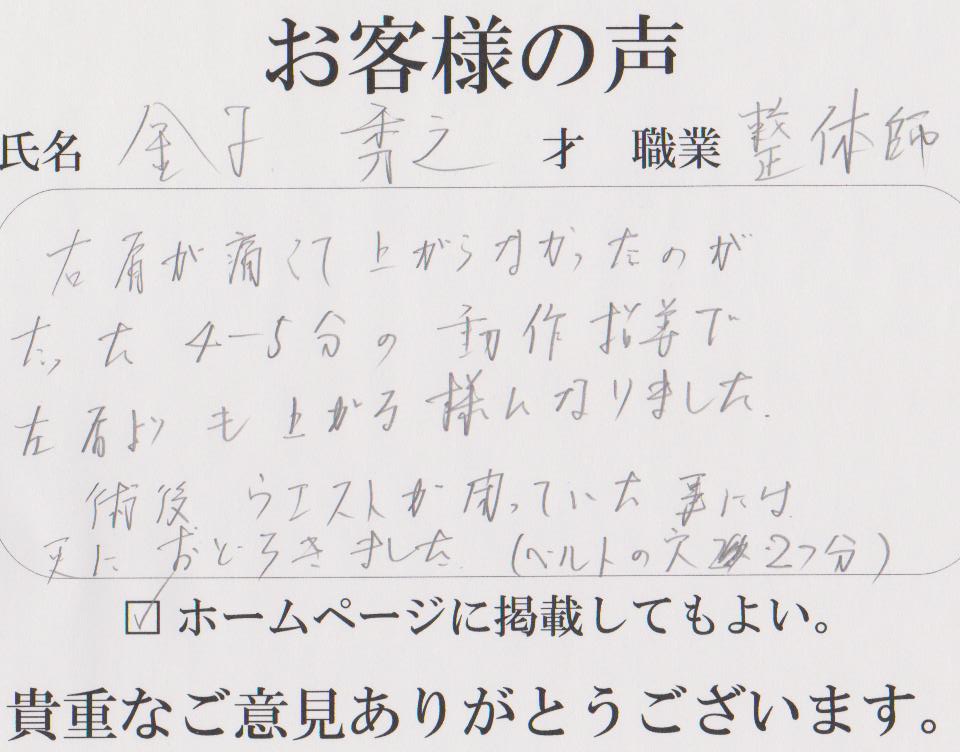 お客様の声
氏名 金子 秀之 才 職業 整体師
右肩が痛くて上がらなかったのが
たった4-5分の動作指導で
左肩よりも上がる様になりました.
術後 ウエストが周っていた事には
更におどろきました. (ベルトの穴 2つ分)
☑ ホームページに掲載してもよい。
貴重なご意見ありがとうございます。